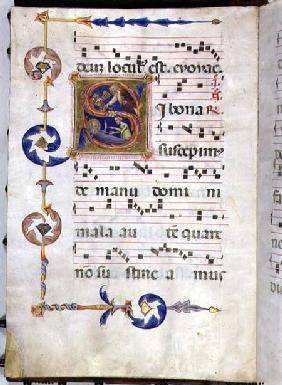 deus locut est. evovae
S I bona R.
suscepim
de manu domi ni
mala au tē quare
no su stine a mus